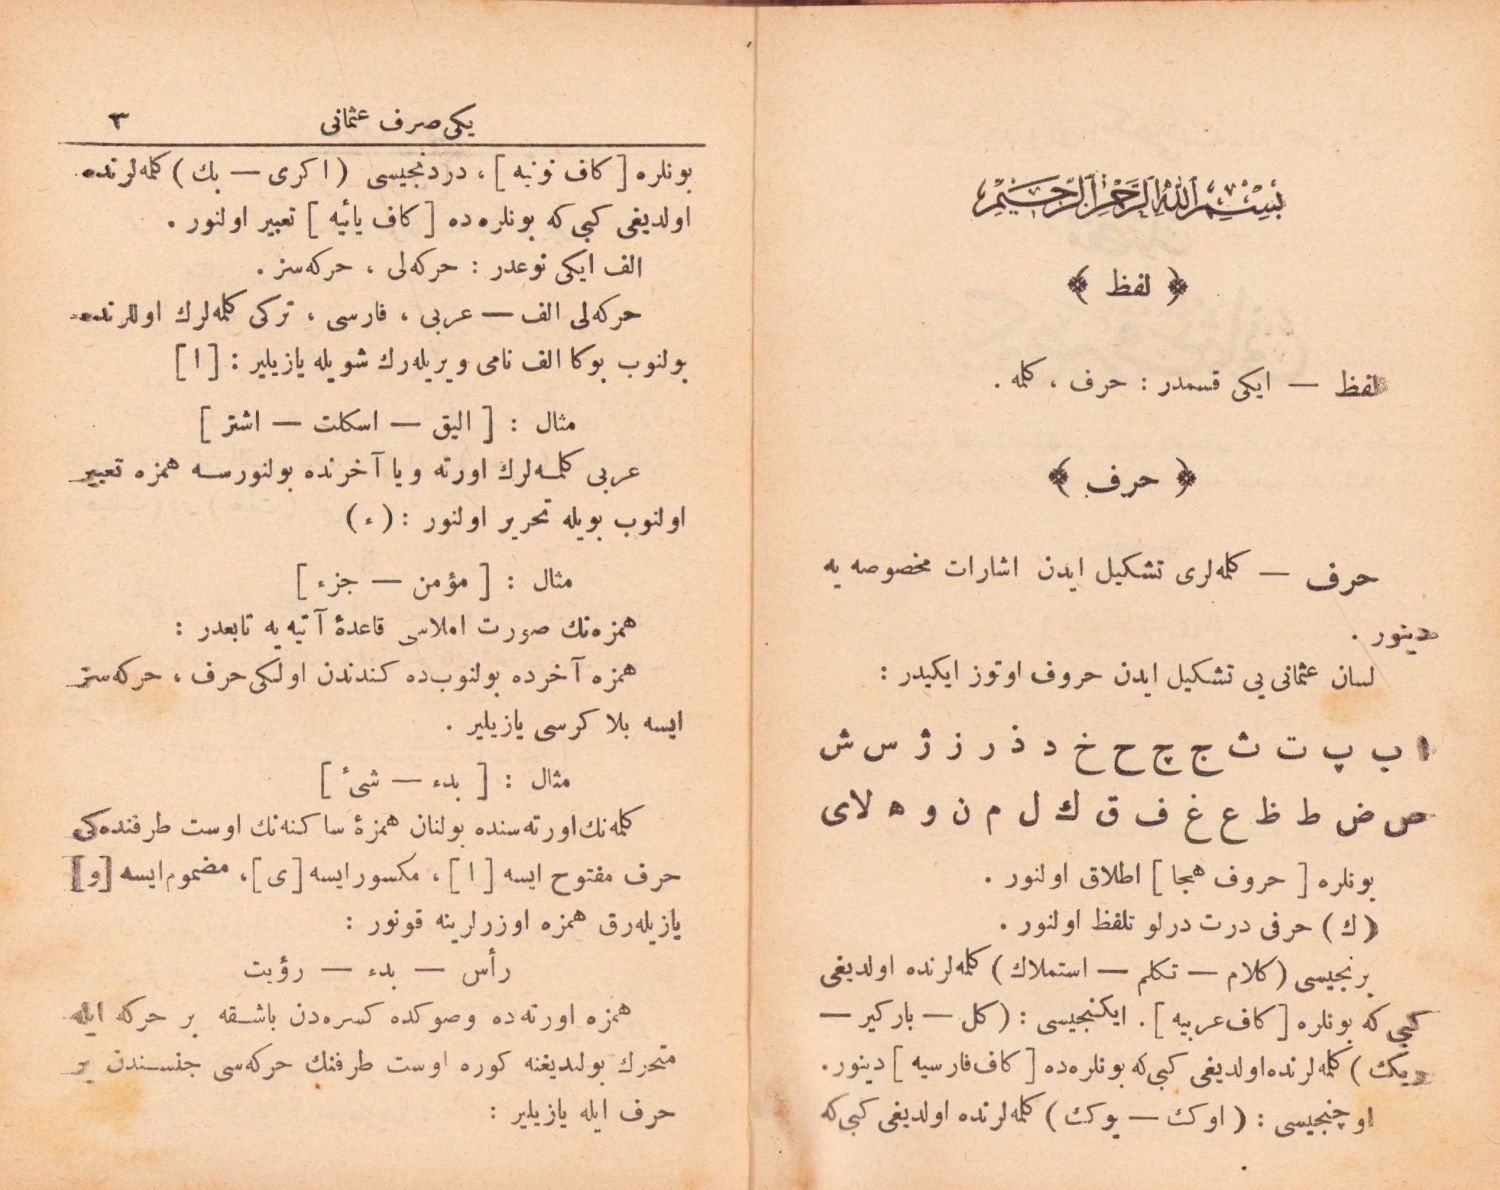 بِسْمِ اللهِ الرَّحْمٰنِ الرَّحِيمِ
﴿ لفظ ﴾
لفظ — ايكى قسمدر : حرف ، كلمه .
﴿ حرف ﴾
حرف — كلمه‌لرى تشكيل ايدن اشارات مخصوصه يه
دينور .
لسان عثمانى يى تشكيل ايدن حروف اوتوز ايكيدر :
ا ب پ ت ث ج چ ح خ د ذ ر ز ژ س ش
ص ض ط ظ ع غ ف ق ك ل م ن و ه لا ى
بونلره [ حروف هجا ] اطلاق اولنور .
( ك ) حرفى درت درلو تلفظ اولنور .
برنجيسى ( كلام — تكلم — استملاك ) كلمه‌لرنده اولديغى
كبى كه بونلره [ كاف عربيه ] . ايكنجيسى : ( كل — باركير —
ديكك ) كلمه‌لرنده اولديغى كبى كه بونلره‌ده [ كاف فارسيه ] دينور .
اوچنجيسى : ( اوك — يوك ) كلمه‌لرنده اولديغى كبى كه
يكى صرف عثمانى
٣
بونلره [ كاف نونيه ] ، دردنجيسى ( اكرى — بك ) كلمه‌لرنده
اولديغى كبى كه بونلره‌ده [ كاف يائيه ] تعبير اولنور .
الف ايكى نوعدر : حركه‌لى ، حركه‌سز .
حركه‌لى الف — عربى ، فارسى ، تركى كلمه‌لرك اوللرنده
بولنوب بوكا الف نامى ويريله‌رك شويله يازيلير : [ ا ]
مثال : [ اليق — اسكلت — اشتر ]
عربى كلمه‌لرك اورته ويا آخرنده بولنورسه همزه تعبير
اولنوب بويله تحرير اولنور : ( ء )
مثال : [ مؤمن — جزء ]
همزه‌نك صورت املاسى قاعدۀ آتيه يه تابعدر :
همزه آخرده بولنوب‌ده كندندن اولكى حرف ، حركه‌سز
ايسه بلا كرسى يازيلير .
مثال : [ بدء — شئ ]
كلمه‌نك اورته‌سنده بولنان همزۀ ساكنه‌نك اوست طرفنده‌كى
حرف مفتوح ايسه [ ا ] ، مكسور ايسه [ ى ] ، مضموم ايسه [ و ]
يازيله‌رق همزه اوزرلرينه قونور :
رأس — بدء — رؤيت
همزه اورته‌ده وصوكده كسره‌دن باشقه بر حركه ايله
متحرك بولنديغنه كوره اوست طرفنك حركه‌سى جنسندن بر
حرف ايله يازيلير :